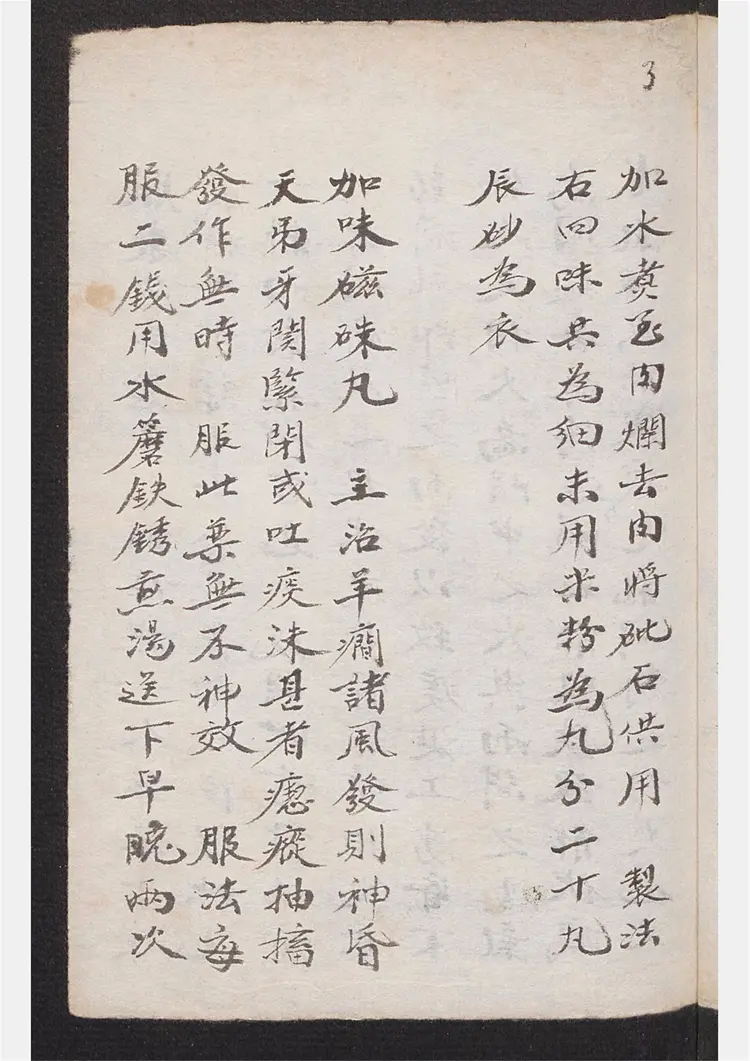 3
加水煑至肉爛去肉將砒石供用　製法
右四味共為細末用米粉為丸分二十九
辰砂為衣
加味磁硃丸　主治羊癎諸風發則神昏
天弔牙関緊閉或吐痰沫甚者瘛瘲抽搐
發作無時　服此藥無不神效　服法每
服二錢用水蘑鉄銹煎湯送下早晚兩次